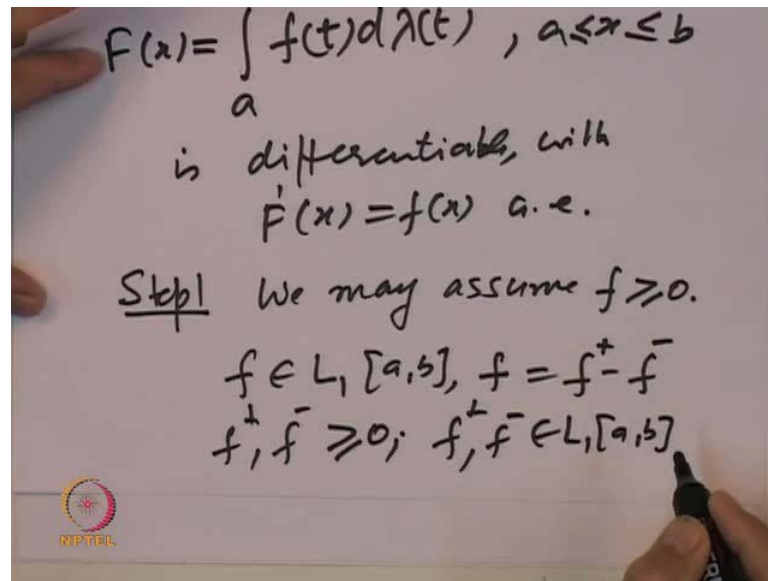 F(x) = ∫ f(t) dλ(t) , a ≤ x ≤ b
a
is differentiable, with
F'(x) = f(x) a.e.
Step1 We may assume f ≥ 0.
f ∈ L₁ [a,b], f = f⁺ - f⁻
f⁺, f⁻ ≥ 0; f⁺, f⁻ ∈ L₁[a,b]
NPTEL